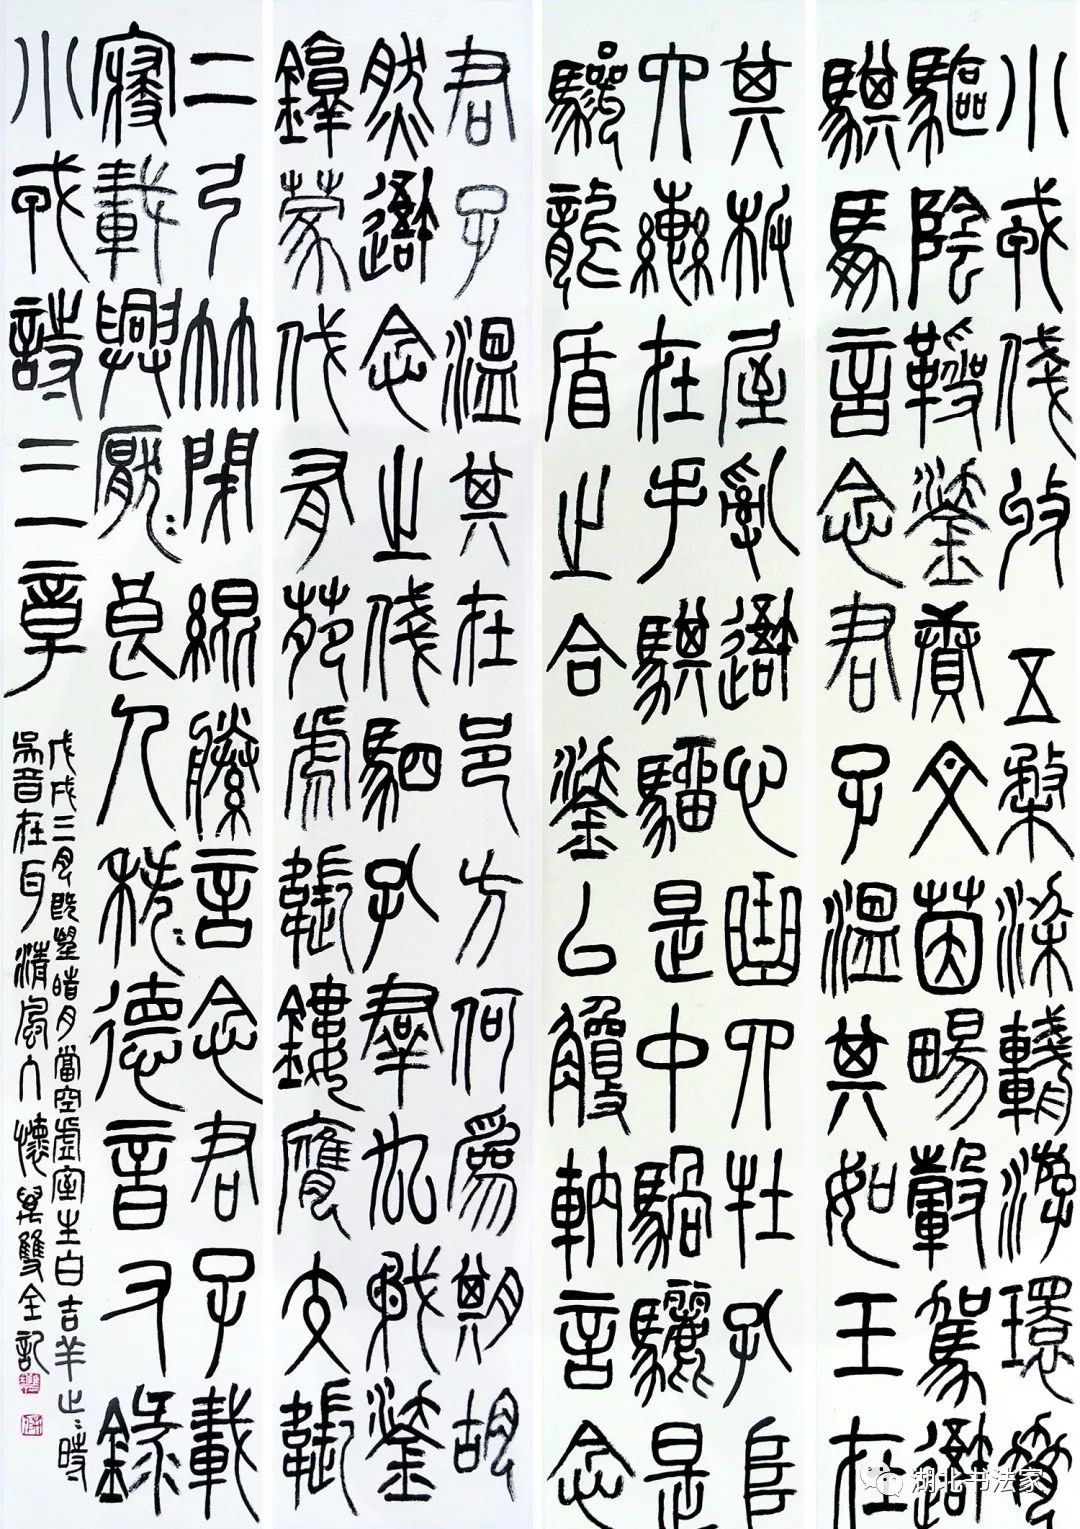 小戎俴收五楘梁輈游環脅
驅陰靷鋈續文茵暢轂駕我
騏馵言念君子溫其如玉在
其板屋亂我心曲四牡孔阜
六轡在手騏騮是中騧驪是
驂龍盾之合鋈以觼軜言念
君子溫其在邑方何為期胡
然我念之俴駟孔群厹矛鋈
錞蒙伐有苑虎韔鏤膺交韔
二弓竹閉緄縢言念君子載
寢載興厭〻良人秩〻德音右錄
小戎詩三章
戊戌三月既望晴月當空虛室生白吉羊止〻時
吳音在耳清風入懷吳雙全記
湖北书法家